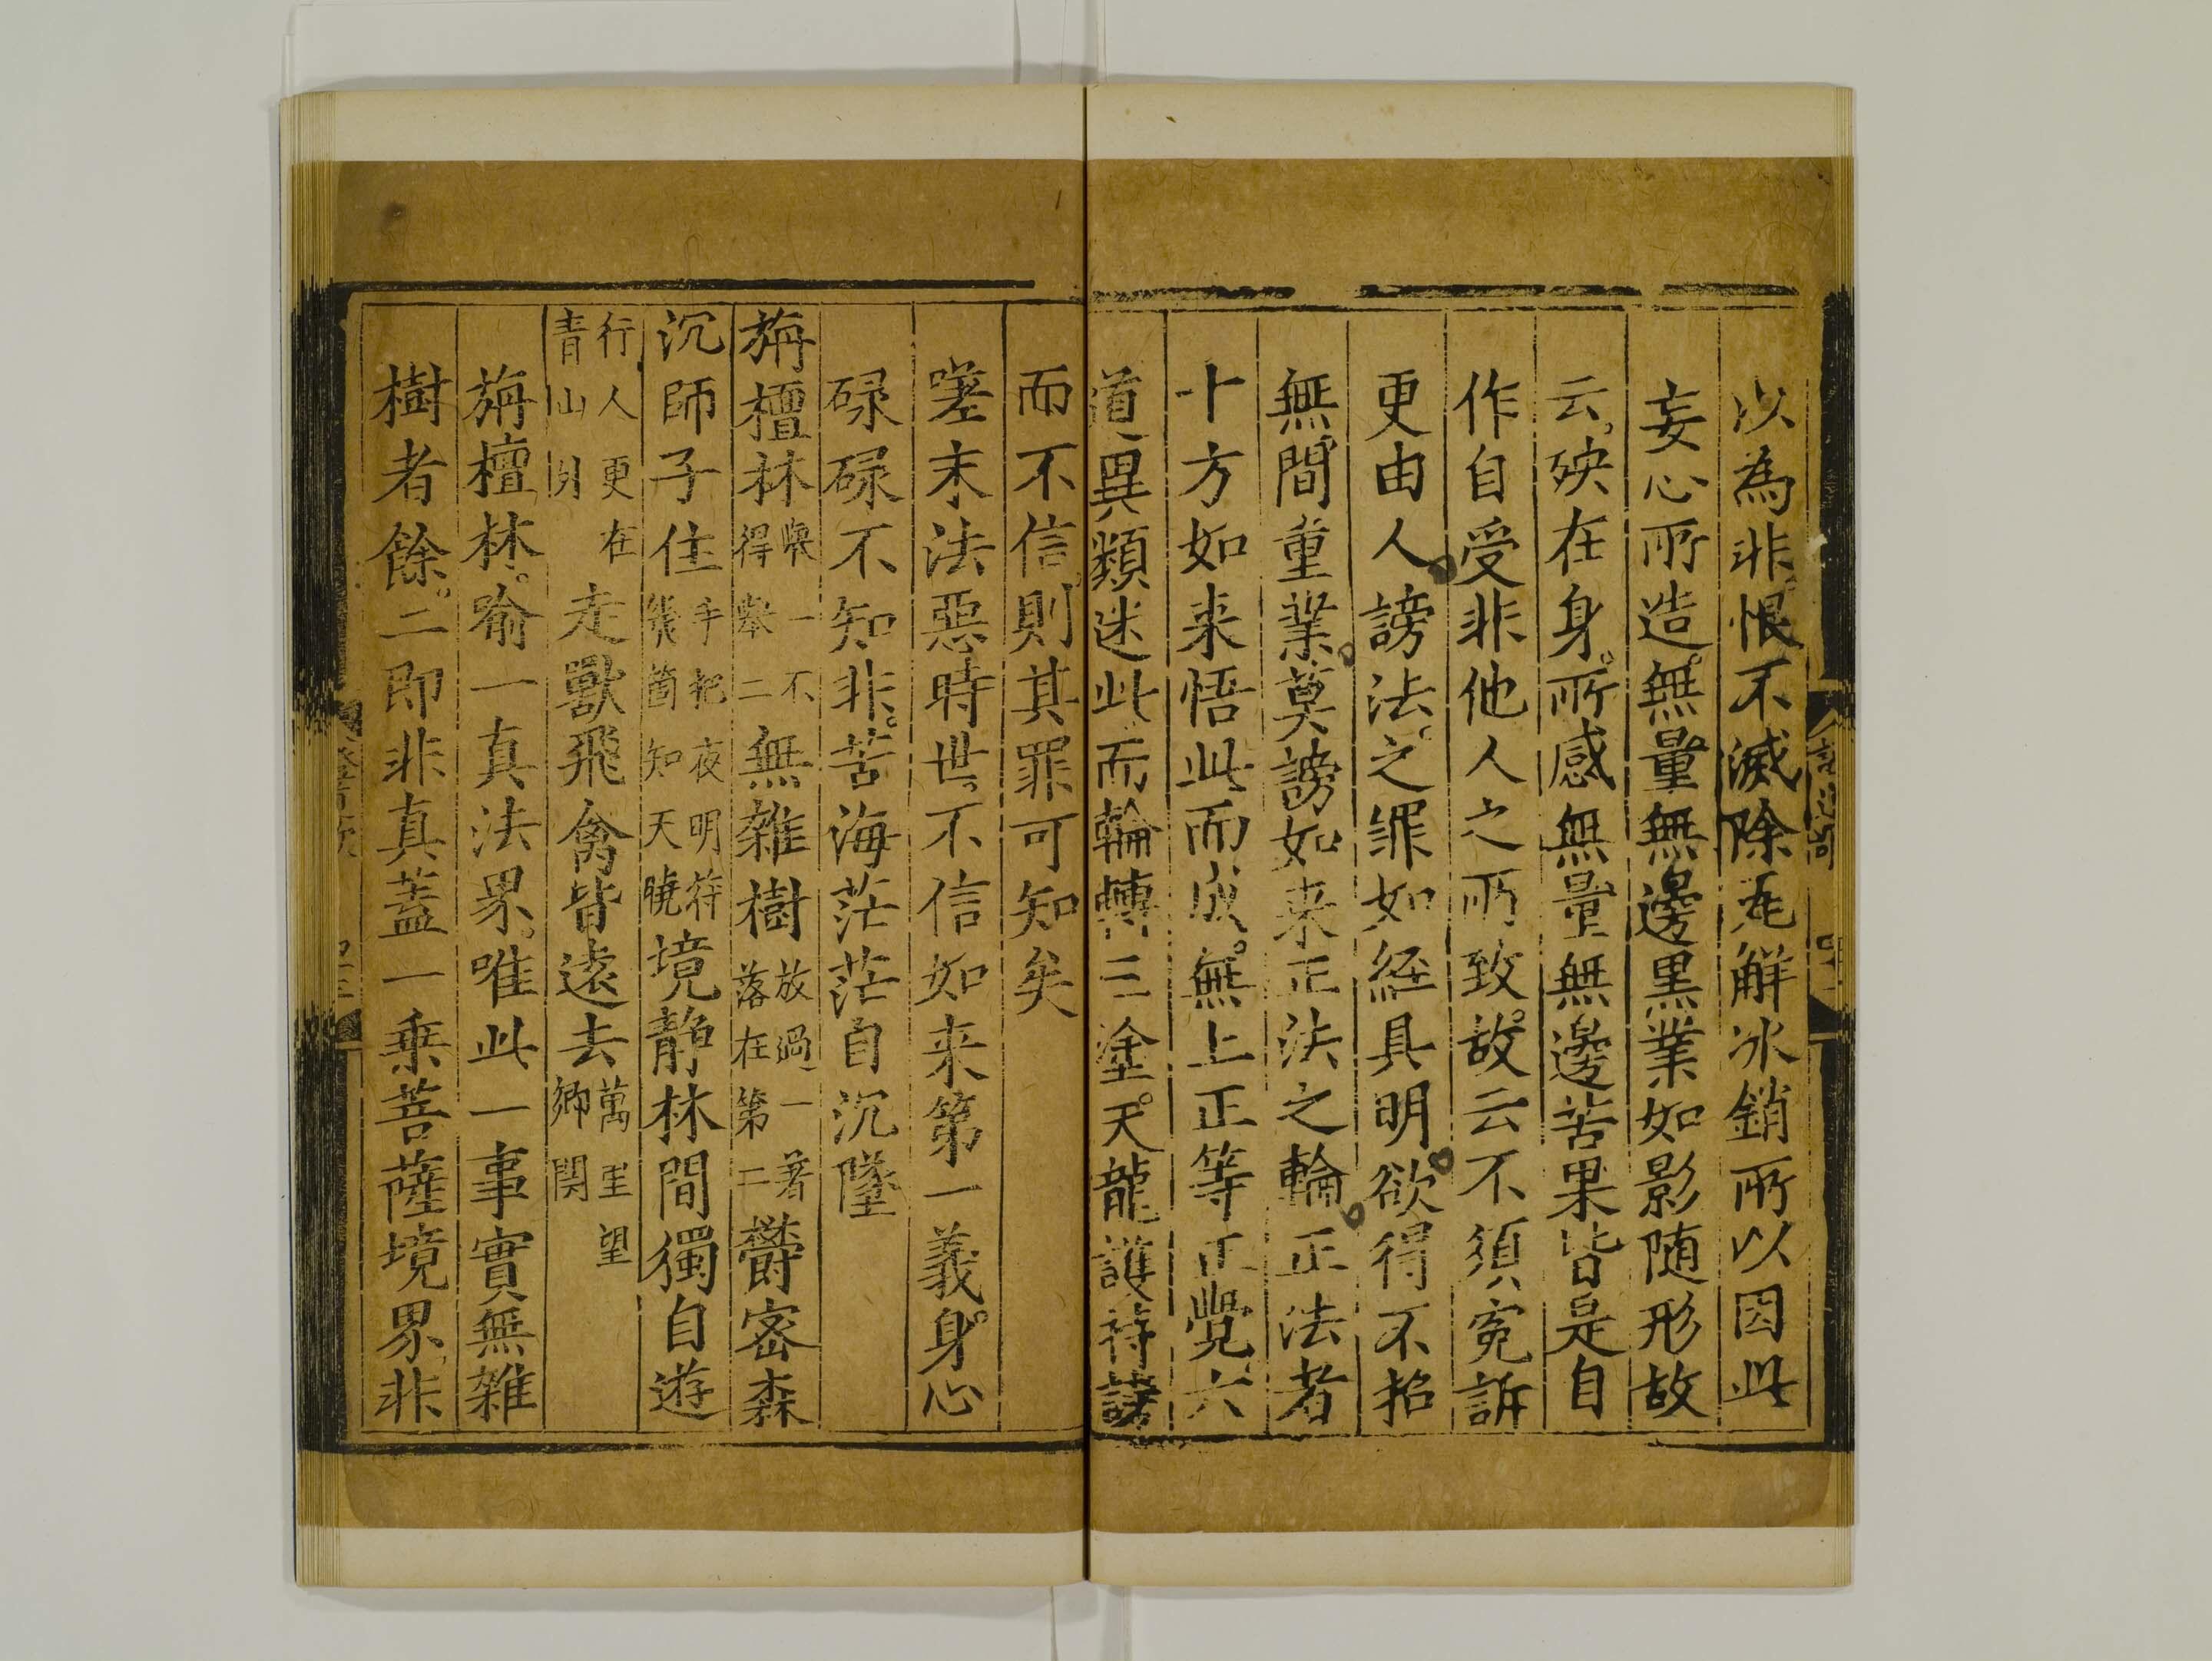 以為非恨不滅除瓦解冰銷所以因此
妄心所造無量無邊黑業如影随形故
云殃在身所感無量無邊苦果皆是自
作自受非他人之所致故云不須寃訴
更由人謗法之罪如経具明欲得不招
無間重業莫謗如来正法之輪正法者
十方如来悟此而成無上正等正覺六
道異類迷此而輪轉三塗天龍護持謗
而不信則其罪可知矣
嗟末法惡時世不信如来第一義身心
碌碌不知非苦海茫茫自沉墜
旃檀林喚一不得舉二無雜樹放過一著落在第二欝密森
沉師子住手把夜明符幾箇知天曉境静林間獨自遊
行人更在青山外走獸飛禽皆遠去萬里望鄉関
旃檀林喻一真法界唯此一事實無雜
樹者餘二即非真蓋一乗菩薩境界非